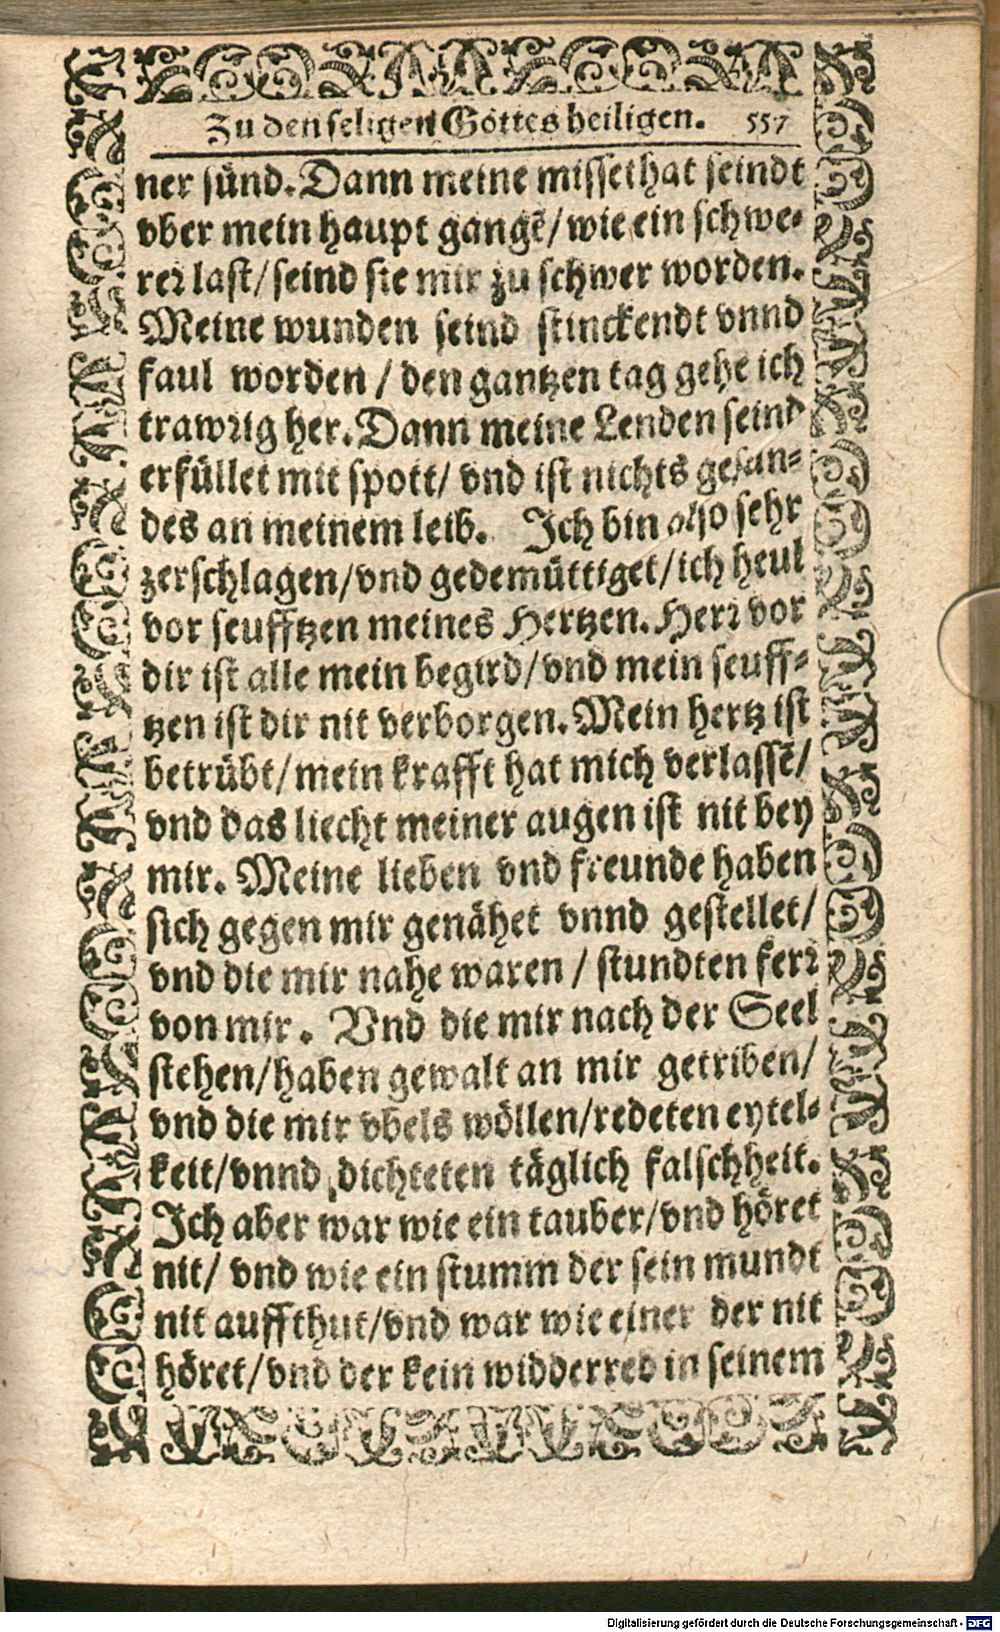 Zu den seligen Gottes heiligen. 557
ner sünd. Dann meine missethat seindt
vber mein haupt gangē/ wie ein schwe-
rer last/ seind sie mir zu schwer worden.
Meine wunden seind stinckendt vnnd
faul worden / den gantzen tag gehe ich
trawrig her. Dann meine Lenden seind
erfüllet mit spott/ vnd ist nichts gesun-
des an meinem leib. Ich bin also sehr
zerschlagen/vnd gedemüttiget/ich heul
vor seufftzen meines Hertzen. Herr vor
dir ist alle mein begird/vnd mein seuff-
tzen ist dir nit verborgen. Mein hertz ist
betrübt/mein krafft hat mich verlassē/
vnd das liecht meiner augen ist nit bey
mir. Meine lieben vnd freunde haben
sich gegen mir genähet vnnd gestellet/
vnd die mir nahe waren / stundten ferr
von mir. Vnd die mir nach der Seel
stehen/haben gewalt an mir getriben/
vnd die mir vbels wöllen/redeten eytel-
keit/vnnd dichteten täglich falschheit.
Ich aber war wie ein tauber/vnd höret
nit/ vnd wie ein stumm der sein mundt
nit auffthut/vnd war wie einer der nit
höret/vnd der kein widderred in seinem
Digitalisierung gefördert durch die Deutsche Forschungsgemeinschaft - DFG